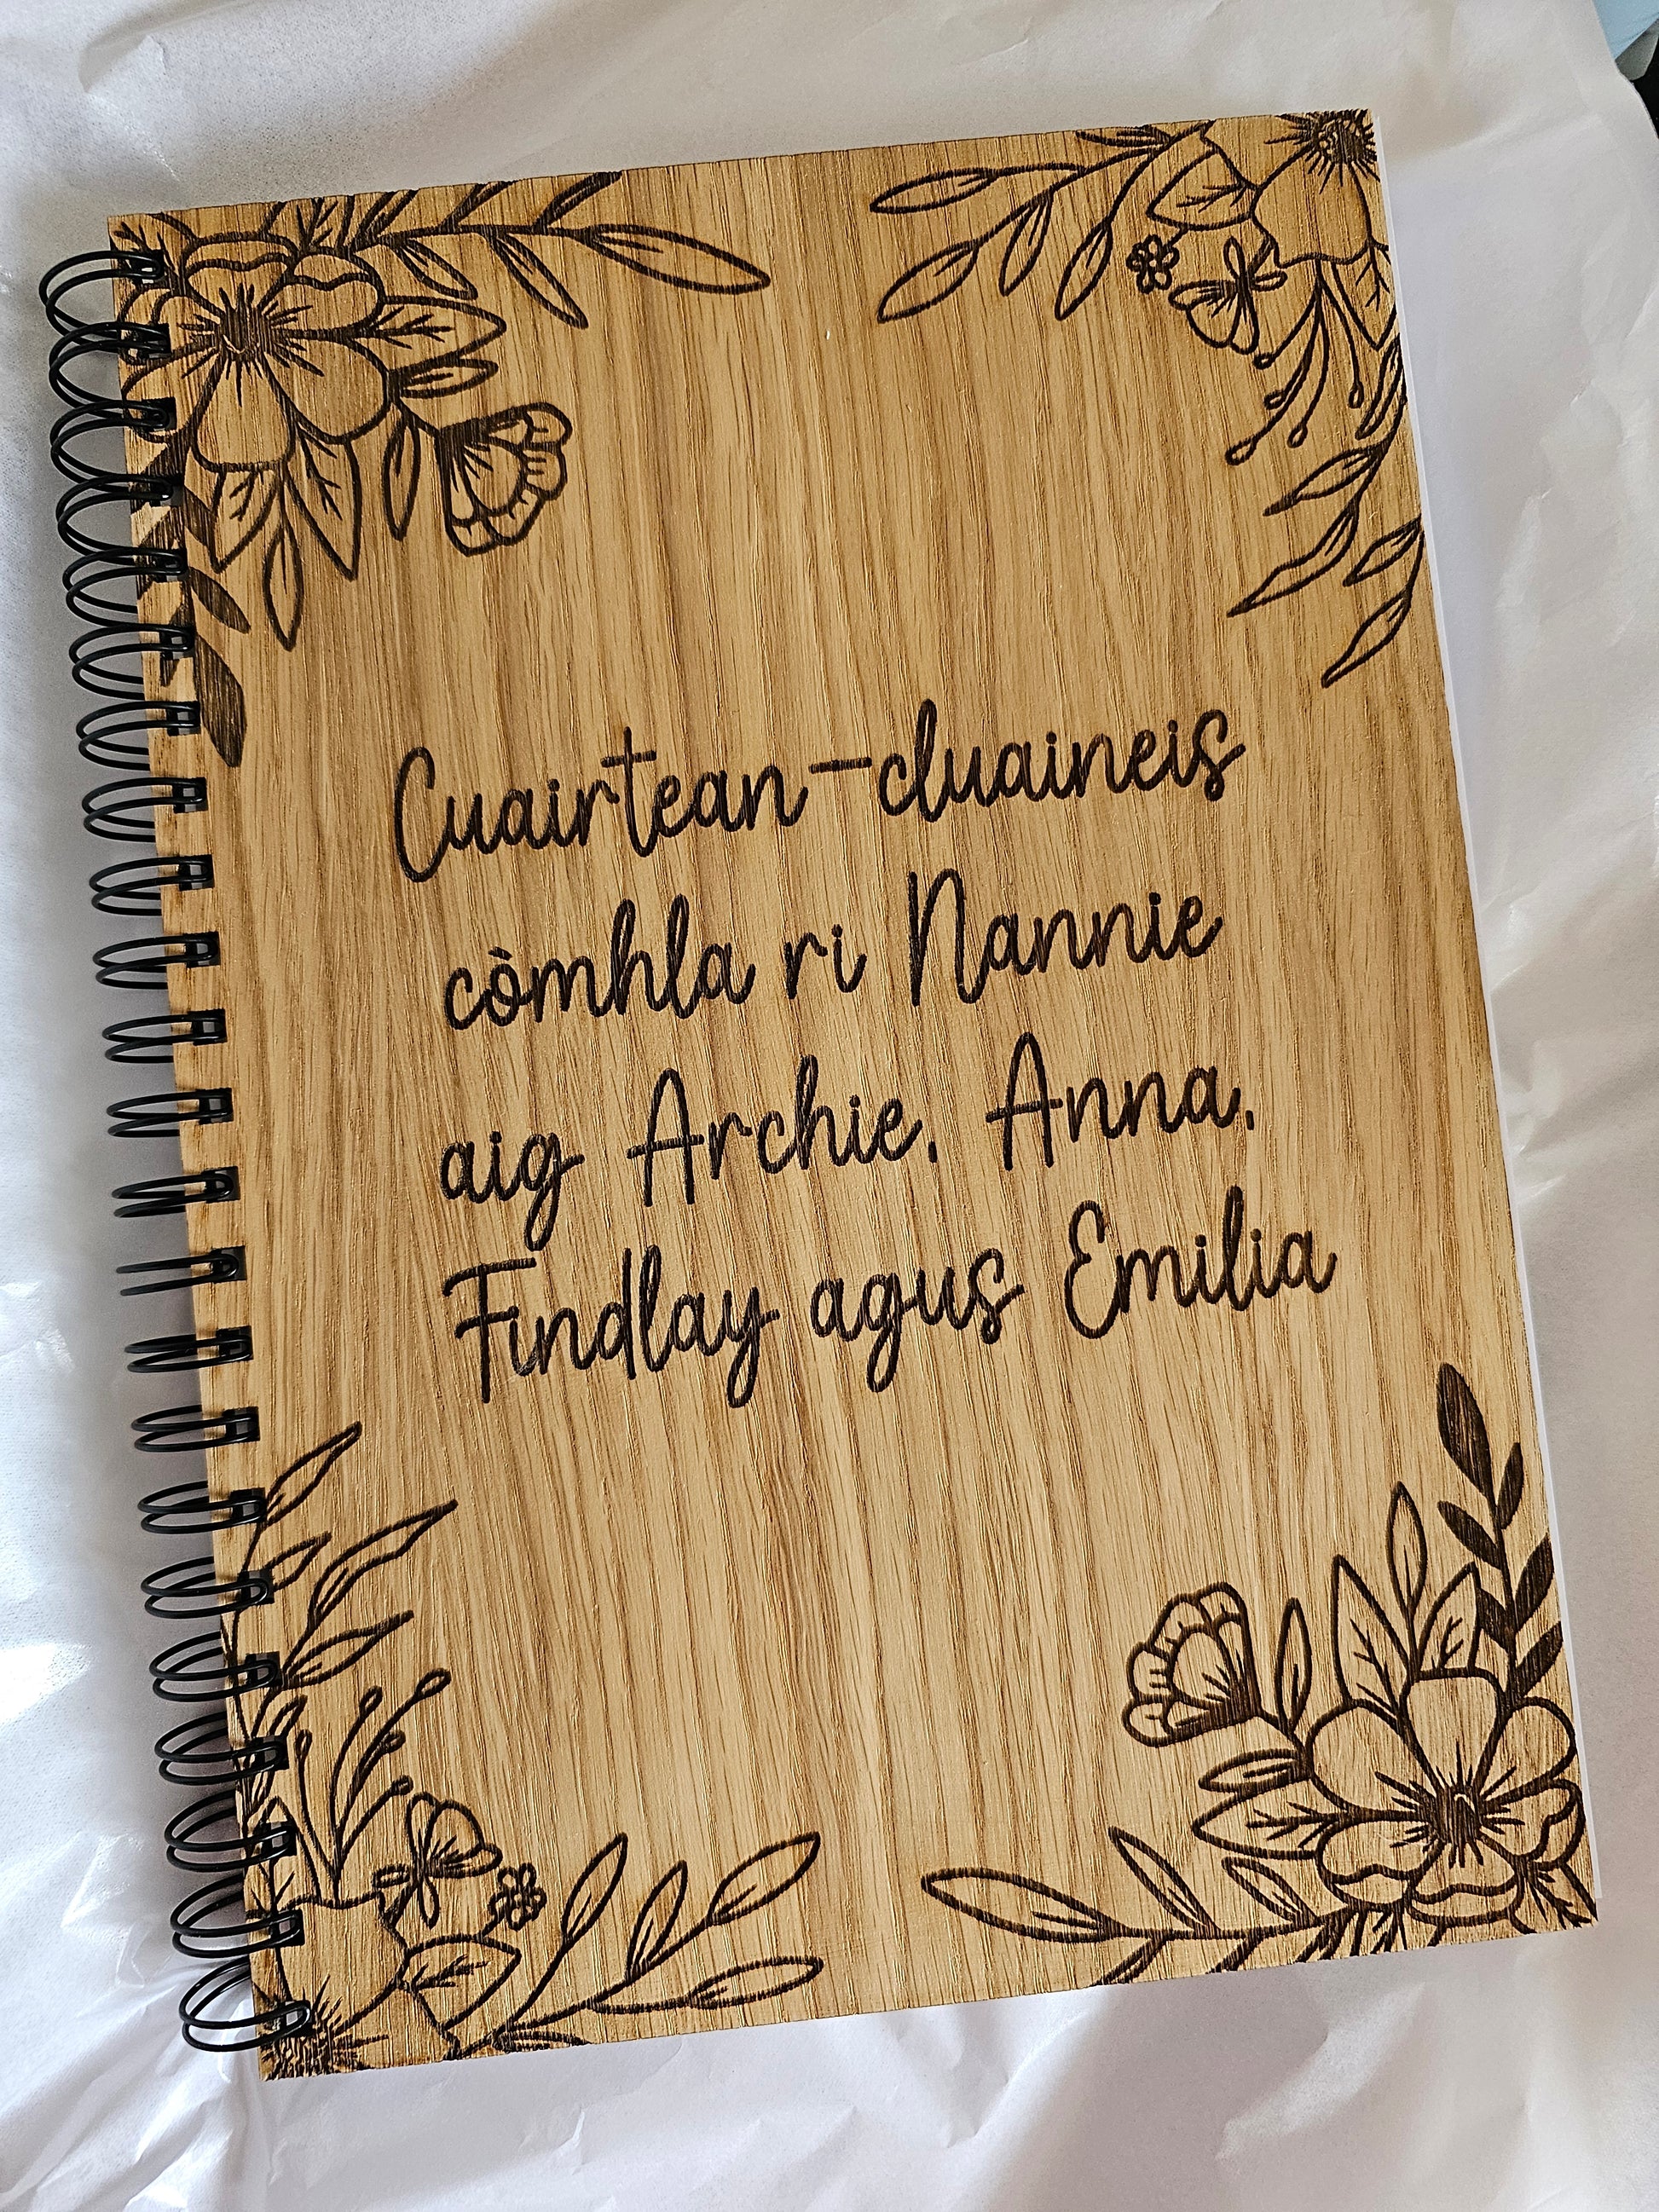 Cuairtean-cluaineis
còmhla ri Nannie
aig Archie, Anna,
Findlay agus Emilia